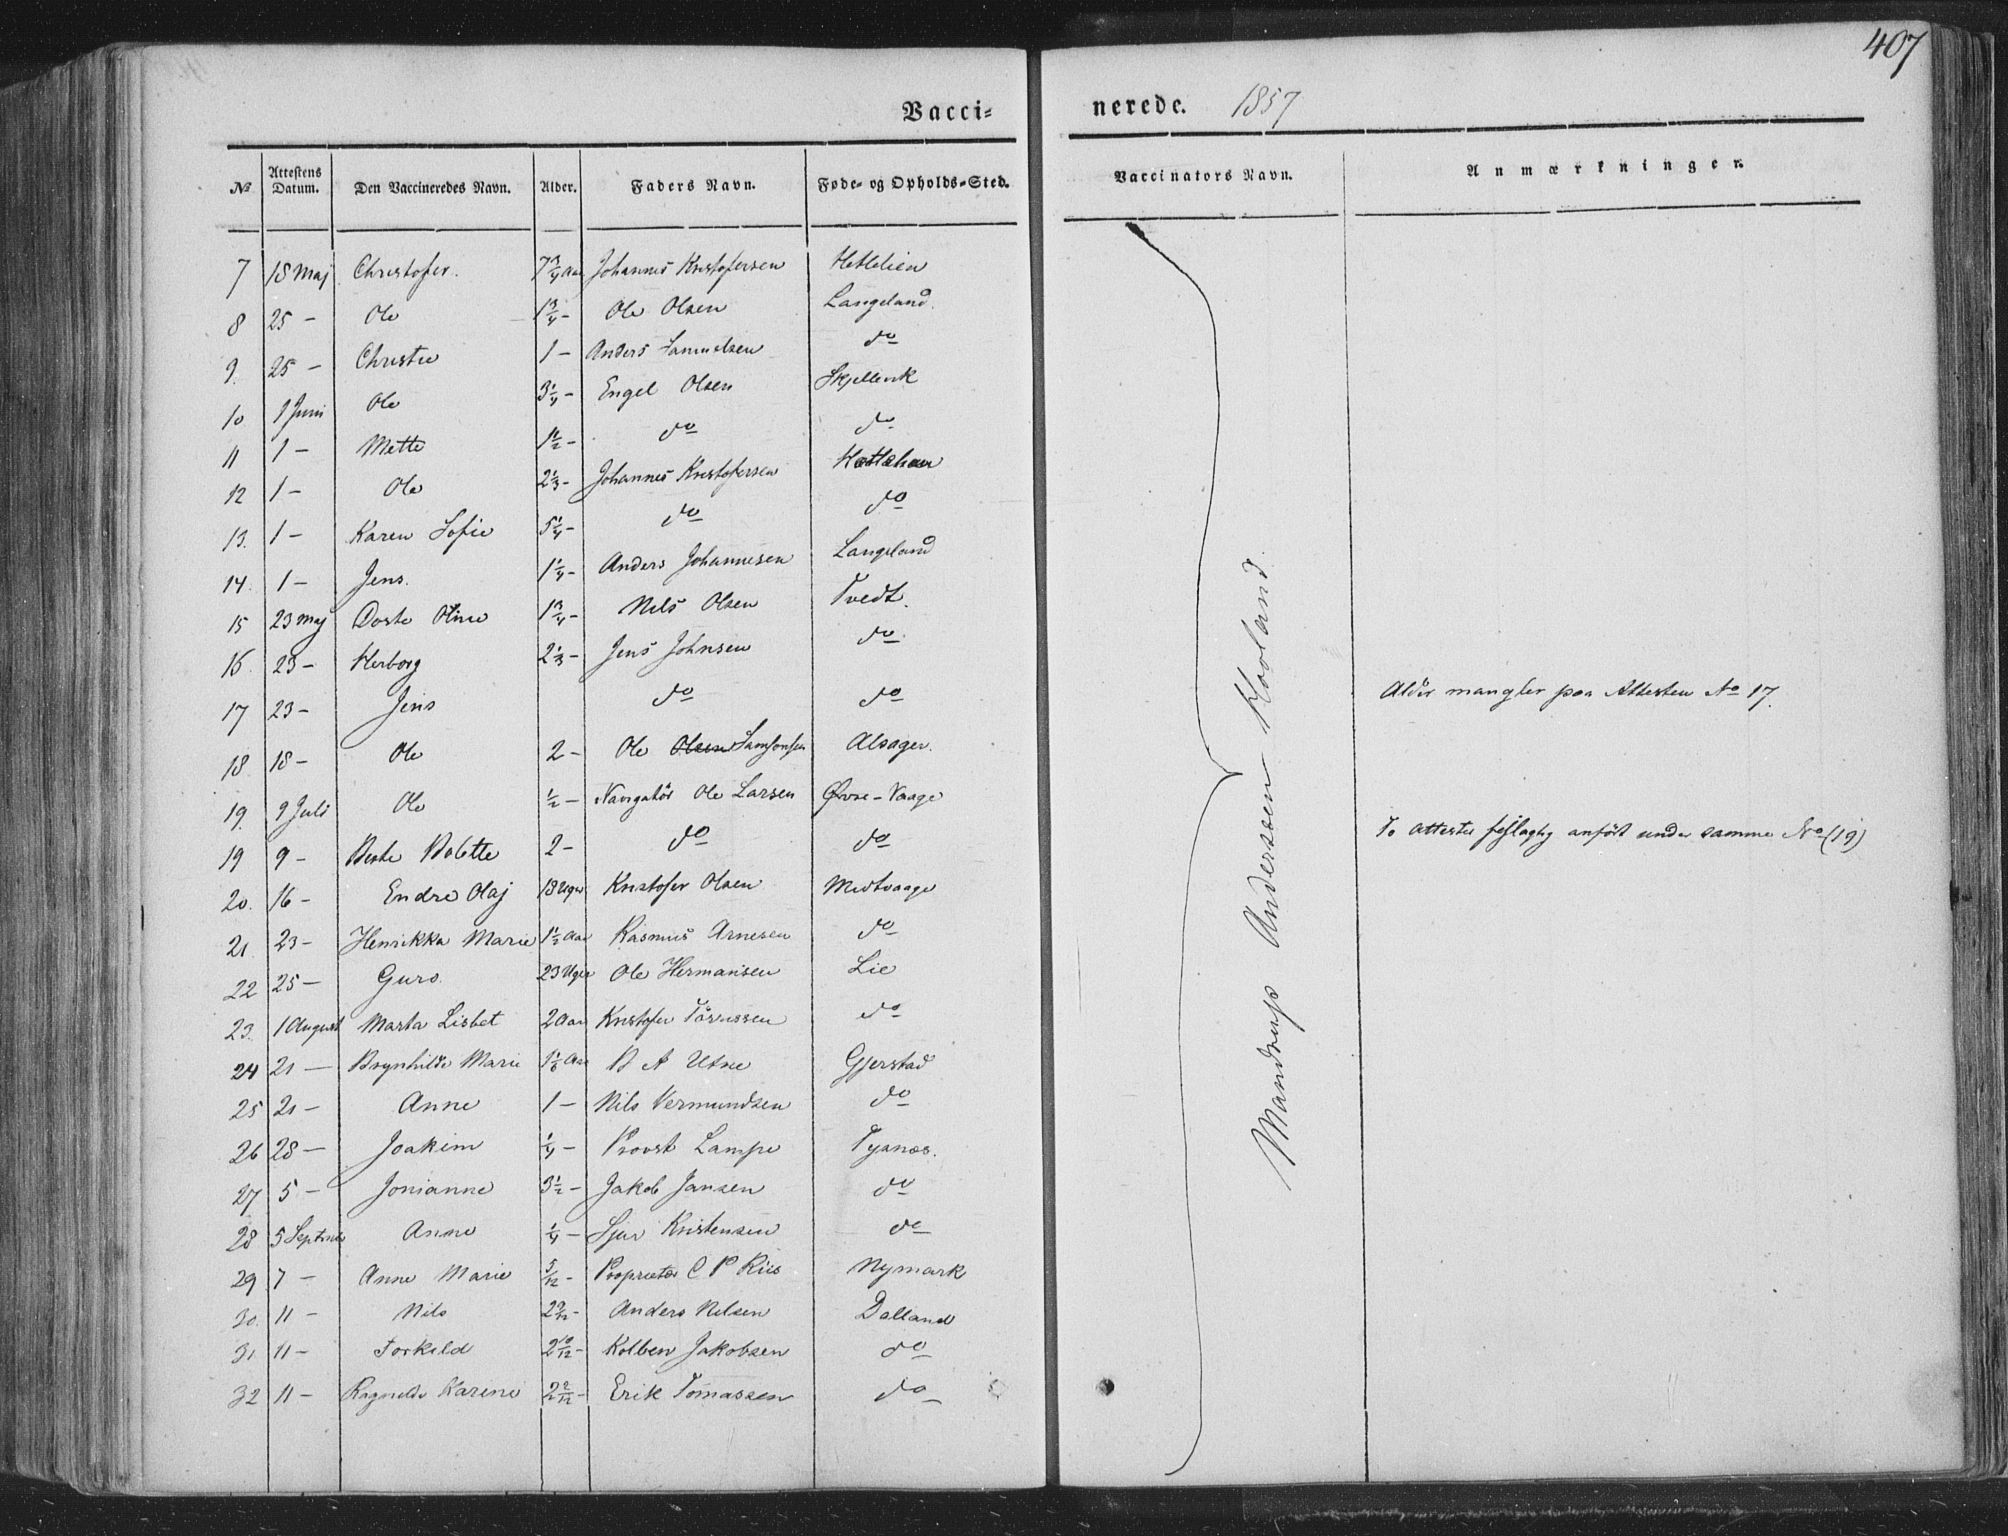 407
Vacci-
nerede. 1857
№ Attestens Datum. Den Vaccineredes Navn. Alder. Faders Navn. Føde- og Opholds-Sted.
Vaccinators Navn. Anmærkninger.
7 18 Maj Christofer. 7 3/4 Aar Johannes Kristofersen Hetlelien
8 25 - Ole 1 3/4 - Ole Olsen Langeland.
9. 25 - Christie 1 - Anders Samuelsen do
10 1 Juni Ole 3 1/4 - Engel Olsen Skjellevik
11 1 - Mette 1 1/2 - do do
12 1 - Ole 2 1/3 - Johannes Kristofersen
13. 1 - Karen Sofie 5 1/4 - do do
14. 1 - Jens. 1 1/4 - Anders Johannesen Langeland
15 23 Maj Dorte Oline 1 3/4 - Nils Olsen Tvedt.
16. 23 - Herborg 2 1/3 - Jens Johnsen do
17 23 - Jens do do
Alder mangler paa Attesten No 17.
18. 18 - Ole 2 - Ole Olsen Samsonsen Alsager.
19. 9 Juli Ole 1/2 - Navigatör Ole Larsen Øvre-Vaage
19 9 - Berte Bolette 2 - do do
To attester fejlagtig anfört under samme No (19)
20. 16 - Endre Olaj 13 Uger Kristofer Olsen Midtvaage
21 23 - Henrikka Marie 1 1/2 Aar Rasmus Arnesen do
22 25 - Guro. 23 Uger Ole Hermansen Lie
23. 1 August Marta Lisbet 2 Aar Kristofer do
24 21 - Brynhilde Marie 1 1/6 Aar B A Utne Gjerstad
25 21 - Anne 1 - Nils Vermundsen do
26 28 - Joakim 1/4 - Provst Lampe Tysnæs.
27 5 - Jonianne 3 1/2 - Jakob Jansen do
28 5 Septmbr Anne 1/4 - Sjur Kristensen do
29 7 - Anne Marie 5/12 - Proprietær C P Riis Nymark
30. 11 - Nils 2 9/12 - Anders Nilsen Dalland
31 11 - Torkild 2 10/12 - Kolben Jakobsen do
32 11 - Ragnilde Karine 2 2/12 - Erik Tomassen do
Mandrup Anderssen Hovland.